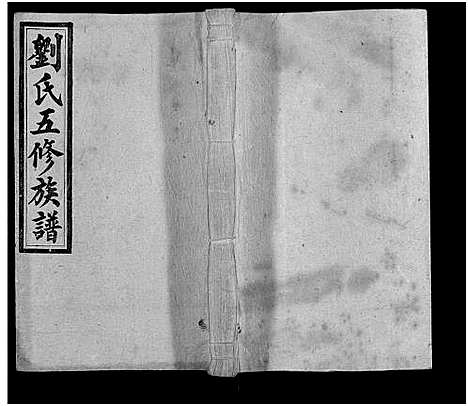 劉氏五修族譜